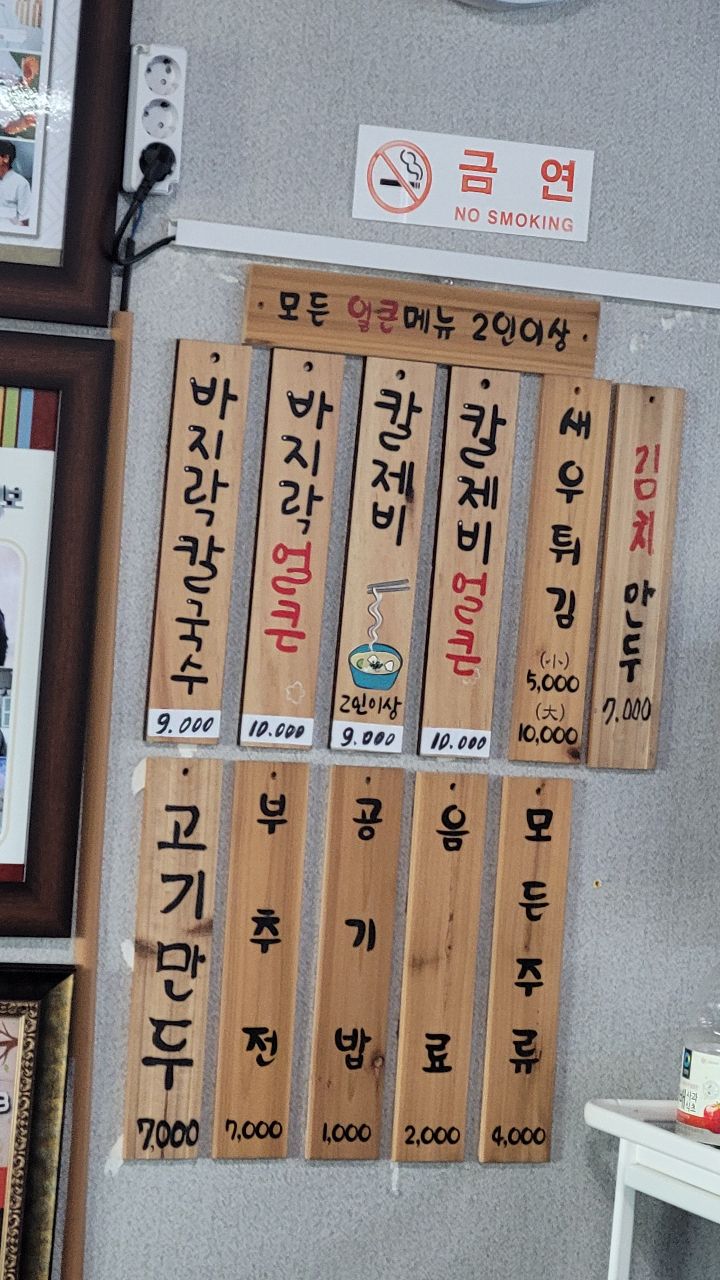 금 연
NO SMOKING
모든 얼큰메뉴 2인이상
바지락칼국수
9.000
바지락얼큰
10.000
칼제비
2인이상
9.000
칼제비얼큰
10.000
새우튀김
(小)
5,000
(大)
10,000
김치만두
7.000
고기만두
7,000
부추전
7,000
공기밥
1,000
음료
2,000
모든주류
4,000